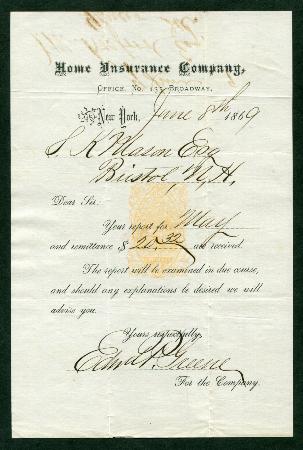 Home Insurance Company,
Office, No. 135 Broadway,
New York, June 8th 1869
S. K. Mason Esq
Bristol, N.H.
Dear Sir:
Your report for May
and remittance $ 20.32 are received.
The report will be examined in due course,
and should any explanations be desired we will
advise you.
Yours respectfully,
Greene
For the Company.